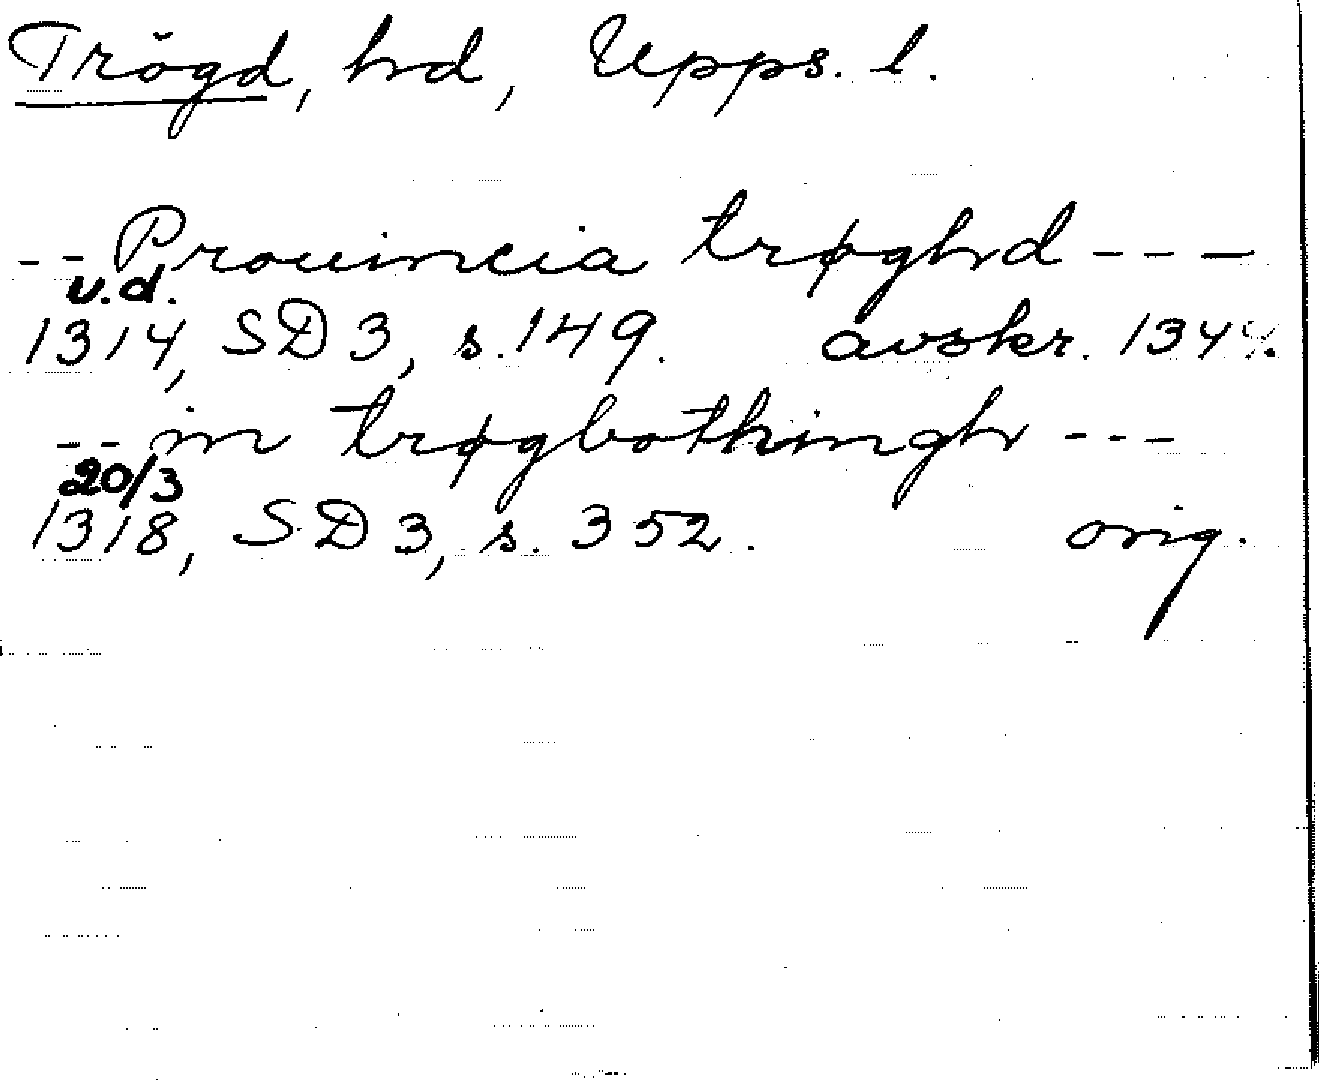 Trögd, hd, Upps. l.
-- Prouincia trøghd ---
u.d.
1314, SD 3, s. 149. avskr. 1344.
-- in trøgbothingh ---
20/3
1318, SD 3, s. 352. orig.